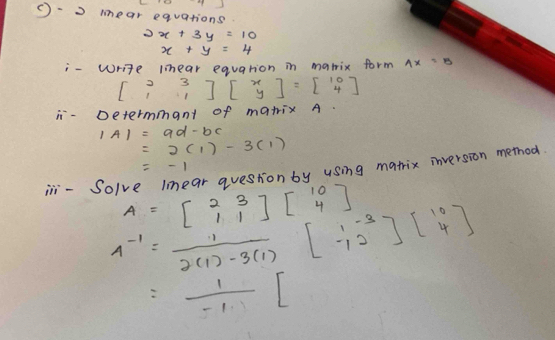 c) - 2 linear equations.
2x + 3y = 10
x + y = 4
i - Write linear equation in matrix form Ax = B
[ 2 3 ] [ x ] = [ 10 ]
[ 1 1 ] [ y ] [ 4 ]
ii - Determinant of matrix A.
|A| = ad - bc
= 2(1) - 3(1)
= -1
iii - Solve linear question by using matrix inversion method.
A = [ 2 3 ] [ 10 ]
[ 1 1 ] [ 4 ]
A⁻¹ = 1 / 2(1) - 3(1) [ 1 -3 ] [ 10 ]
[ -1 2 ] [ 4 ]
= 1 / -1 [